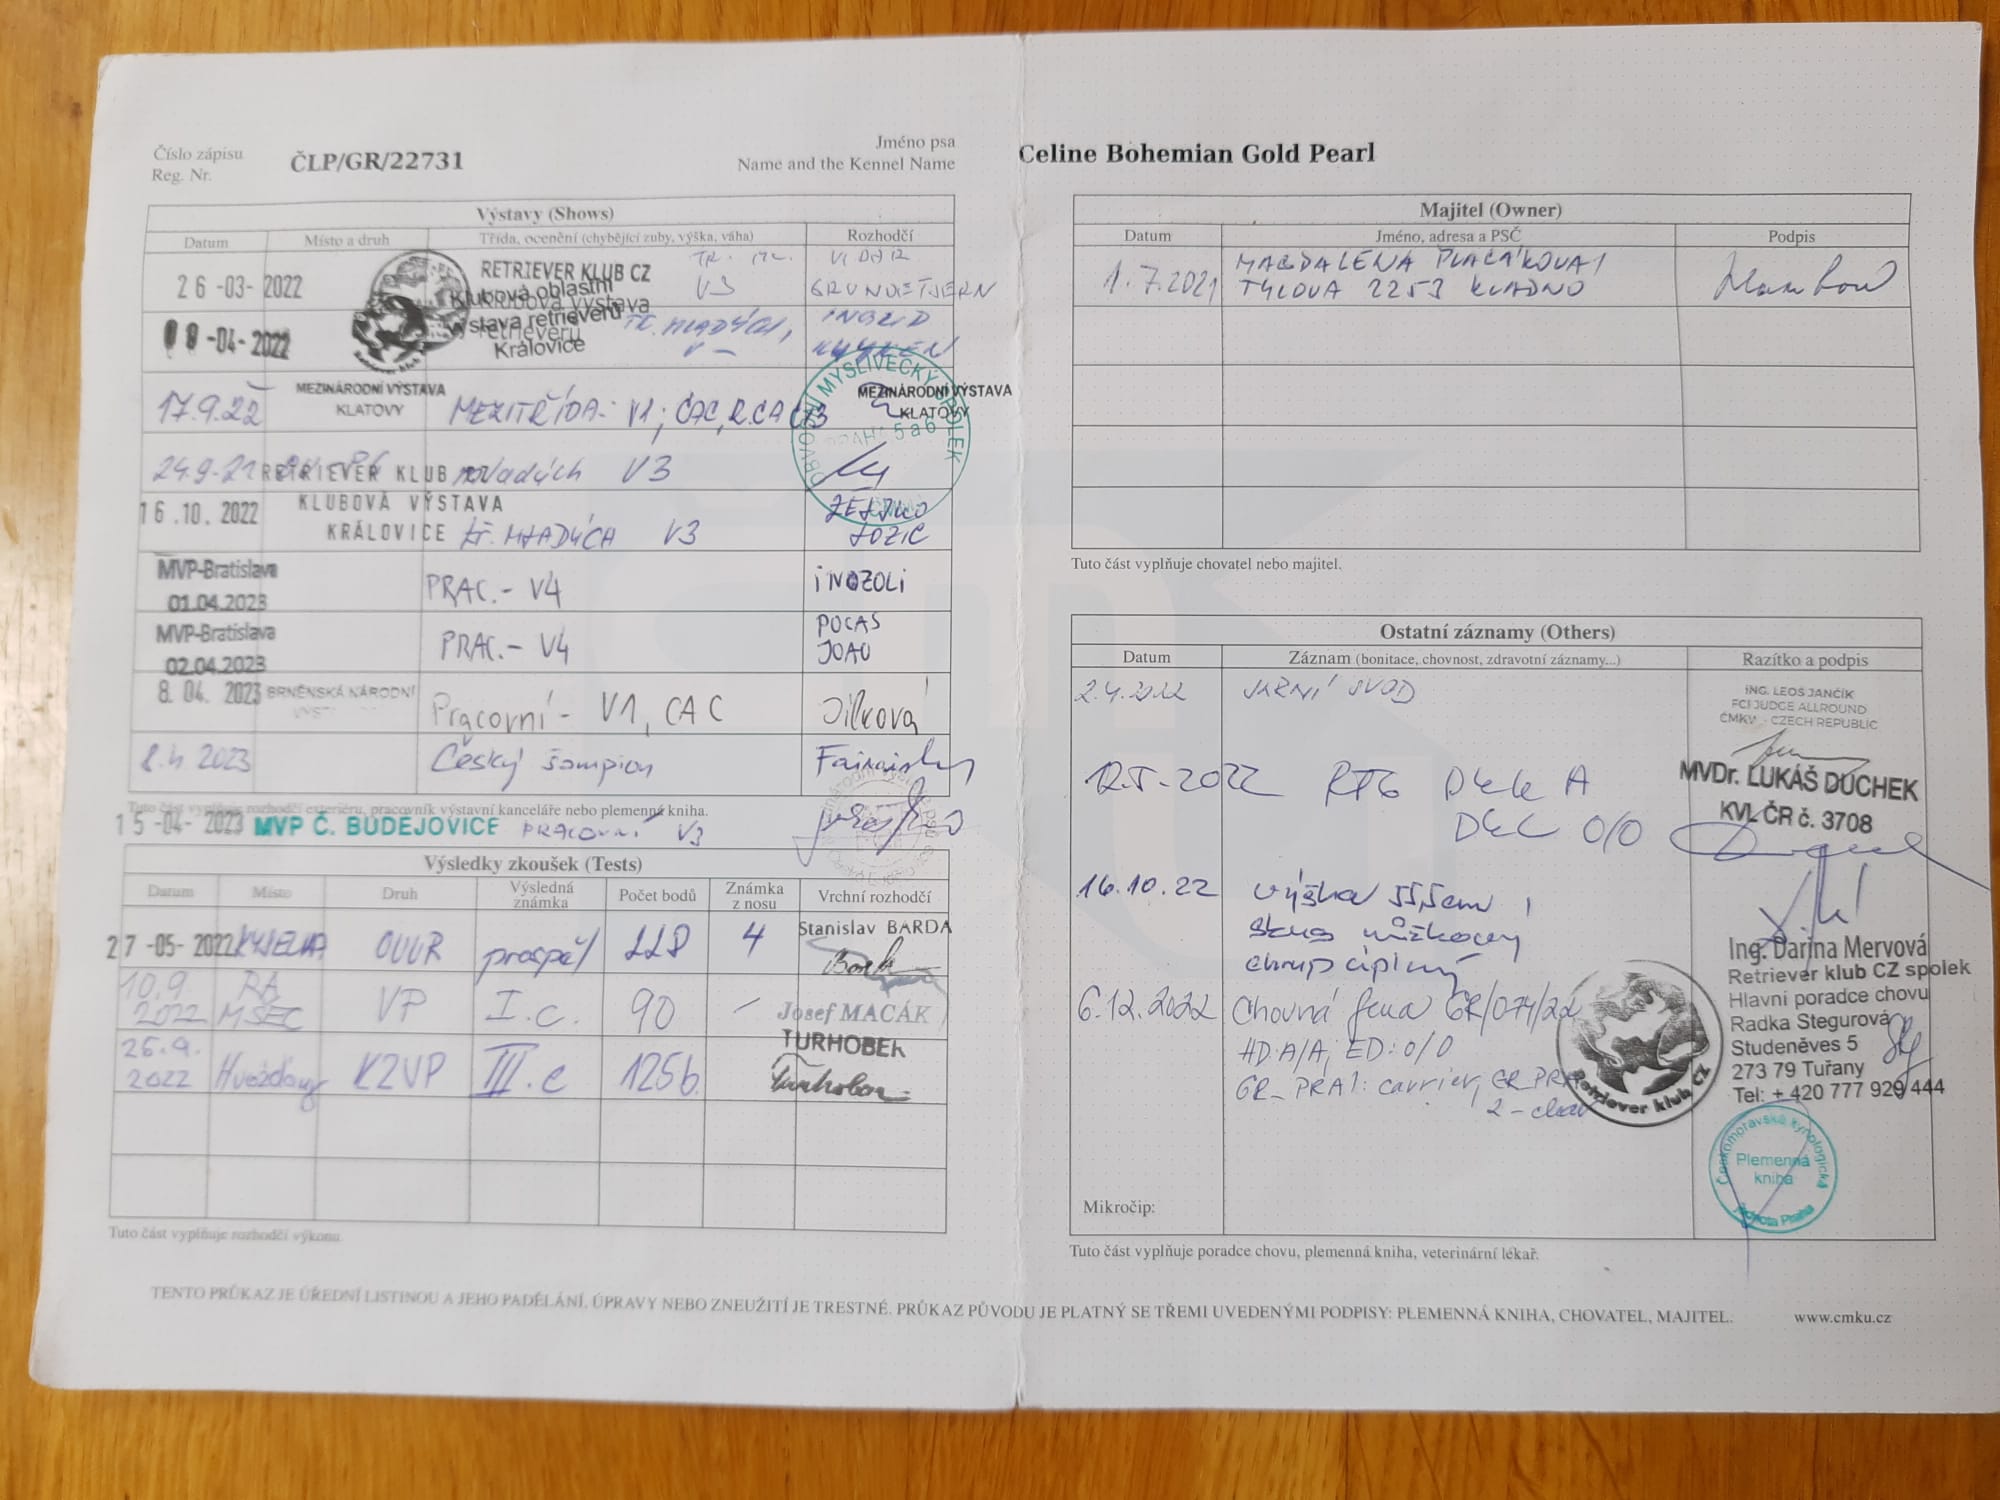 Číslo zápisu
Reg. Nr.
ČLP/GR/22731
Jméno psa
Name and the Kennel Name
Celine Bohemian Gold Pearl
Výstavy (Shows)
Datum Místo a druh Třída, ocenění (chybějící zuby, výška, váha) Rozhodčí
26 -03- 2022 RETRIEVER KLUB CZ V3
Klubová oblastní
výstava retrieverů
Královice
-04- 2022 TŘ. MLADÝCH, INGRID
17.9.22 MEZINÁRODNÍ VÝSTAVA
KLATOVY
MEZITŘÍDA - V1, CAC, R.CAC
MEZINÁRODNÍ VÝSTAVA
KLATOVY
OBVODNÍ MYSLIVECKÝ SPOLEK
PRAHA 5 a 6
24.9. RETRIEVER KLUB mladých V3
16.10. 2022 KLUBOVÁ VÝSTAVA
KRÁLOVICE tř. MLADÝCH V3
MVP-Bratislava
01.04.2023
PRAC. - V4
MVP-Bratislava
02.04.2023
PRAC. - V4 JOAO
8. 04. 2023 BRNĚNSKÁ NÁRODNÍ
Pracovní - V1, CAC Jílková
8.4 2023 Český šampion
Tuto část vyplňuje rozhodčí exteriéru, pracovník výstavní kanceláře nebo plemenná kniha.
15 -04- 2023 MVP Č. BUDEJOVICE PRACOVNÍ V3
Výsledky zkoušek (Tests)
Datum Místo Druh Výsledná známka Počet bodů Známka z nosu Vrchní rozhodčí
27 -05- 2022 OVVR prospěl 4 Stanislav BARDA
10.9. 2022 VP I.c. 90 - Josef MACÁK
TURHOBER
2022 KZVP III.c 125b.
Tuto část vyplňuje rozhodčí výkonu.
Majitel (Owner)
Datum Jméno, adresa a PSČ Podpis
1.7.2021 MAGDALENA PLACÁKOVÁ,
TYLOVA 2253 KLADNO
Tuto část vyplňuje chovatel nebo majitel.
Ostatní záznamy (Others)
Datum Záznam (bonitace, chovnost, zdravotní záznamy...) Razítko a podpis
2.4.2022 JARNÍ SVOD
ING. LEOŠ JANČÍK
FCI JUDGE ALLROUND
ČMKU - CZECH REPUBLIC
12.5-2022 RTG DKK A
DLK 0/0
MVDr. LUKÁŠ DUCHEK
KVL ČR č. 3708
16.10.22 výška 55,5cm,
skus nůžkový
chrup úplný
Ing. Darina Mervová
6.12.2022 Chovná fena GR/074/22
HD: A/A, ED: 0/0
GR_PRA1: carrier, GR_PRA
2 - clear
Retriever klub CZ
Retriever klub CZ spolek
Hlavní poradce chovu
Radka Stegurová
Studeněves 5
273 79 Tuřany
Tel: + 420 777 929 444
Českomoravská kynologická
Plemenná
kniha
Jednota Praha
Mikročip:
Tuto část vyplňuje poradce chovu, plemenná kniha, veterinární lékař.
TENTO PRŮKAZ JE ÚŘEDNÍ LISTINOU A JEHO PADĚLÁNÍ, ÚPRAVY NEBO ZNEUŽITÍ JE TRESTNÉ. PRŮKAZ PŮVODU JE PLATNÝ SE TŘEMI UVEDENÝMI PODPISY: PLEMENNÁ KNIHA, CHOVATEL, MAJITEL.
www.cmku.cz